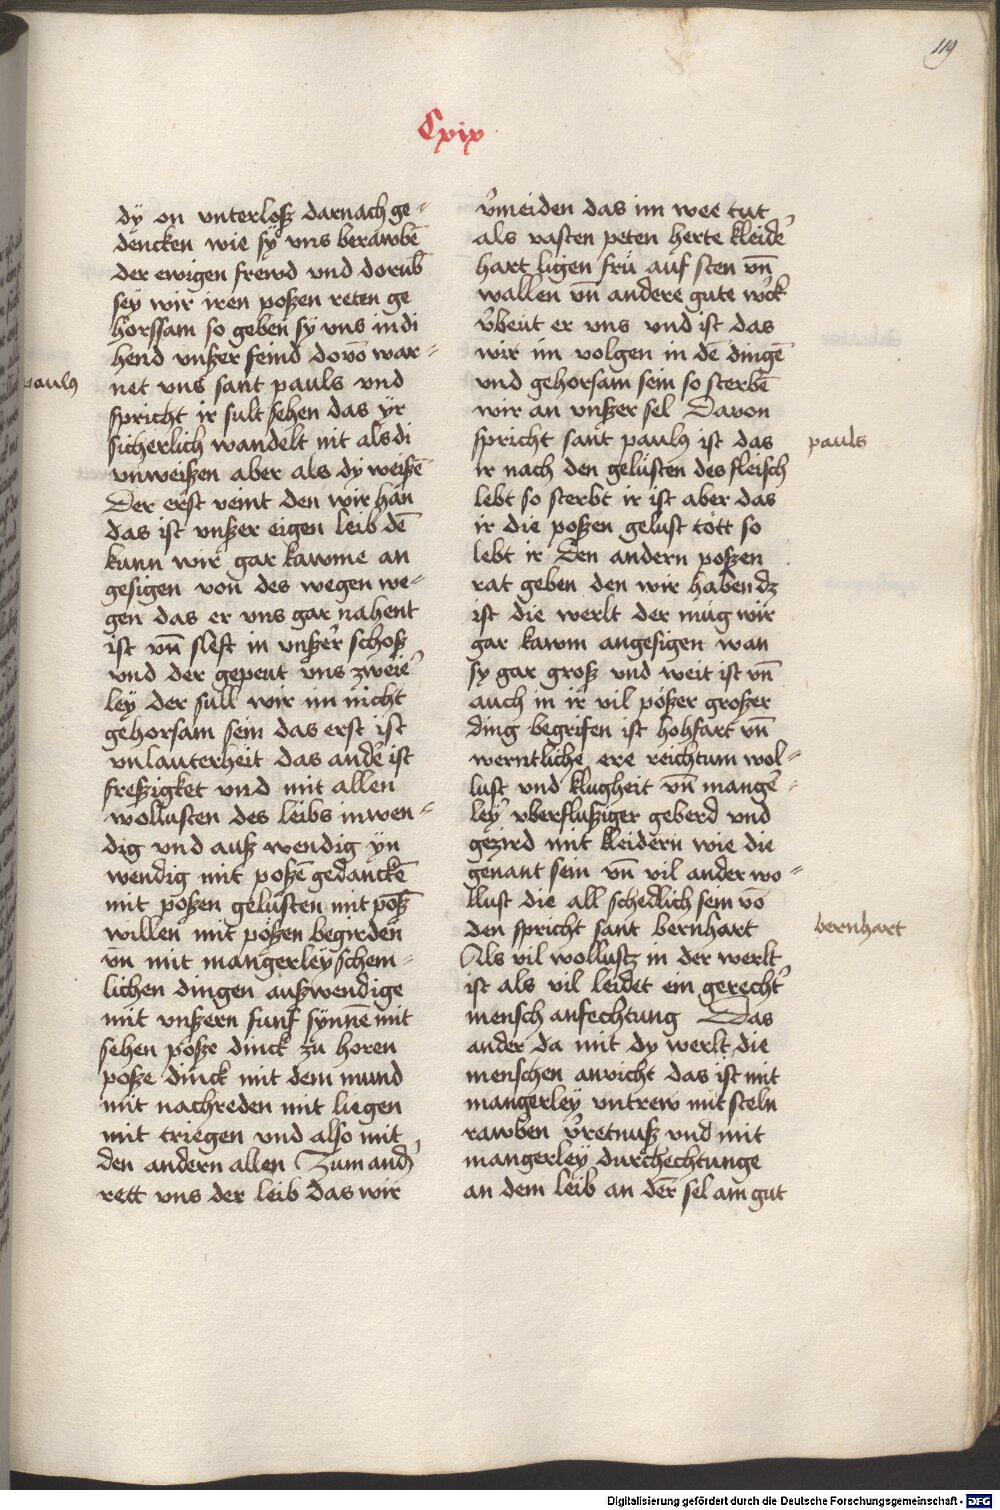 119
Cxix
dÿ on unterlosz darnach ge=
dencken wie sÿ uns berawbē
der ewigen frewd und dorūb
seÿ wir iren poszen reten ge
horssam so geben sÿ uns in di
hend unszer feind dovō war=
net uns sant pauls und
paulꝰ
spricht ir sult sehen das ÿr
sicherlich wandelt nit als di
unweiszen aber als dÿ weiszē
Der erst veint den wir han
das ist unszer eigen leib dē
kunn wir gar kawme an
gesigen von des wegen we=
gen das er uns gar nahent
ist uñ sleft in unszer schosz
und der gepeut uns zweiē
leÿ der sull wir im nicht
gehorsam sein das erst ist
unlauterheit das ander ist
freszigket und mit allen
wollusten des leibs inwen=
dig und ausz wendig ÿn
wendig mit poszē gedanckē
mit poszen gelusten mit posz̄
willen mit poszen begirden
un mit mangerleÿ schem=
lichen dingen auszwendige
mit unszern funf sÿnnē mit
sehen posze dinck zu horen
posze dinck mit dem mund
mit nachreden mit liegen
mit triegen und also mit
den andern allen Zum andˀ
rett uns der leib das wir
vˀmeiden das im wee tut
als vasten peten herte kleidˀ
hart ligen fru auf sten uñ
wallen uñ andere gute wˀck
vˀbeut er uns und ist das
wir im volgen in dē dingē
und gehorsam sein so sterbē
wir an unszer sel Davon
spricht sant paulꝰ ist das
pauls
ir nach den gelusten des fleisch
lebt so sterbt ir ist aber das
ir die poszen gelust tott so
lebt ir Den andern poszen
rat geben den wir haben dz
ist die werlt der mug wir
gar kawm angesigen wan
sy gar grosz und weit ist uñ
auch in ir vil poszer groszer
ding begrifen ist hohfart uñ
werntliche ere reichtum wol=
lust und klugheit uñ mangˀ=
leÿ uberflusziger geberd und
gezird mit kleidern wie die
genant sein uñ vil ander wo=
llust die all schedlich sein vō
den spricht sant bernhart
bernhart
Als vil wollustz in der werlt
ist als vil leidet ein gerechtˀ
mensch anfechtung Das
ander da mit dy werlt die
menschen anvicht das ist mit
mangerleÿ untrew mit steln
rawben vˀretnusz und mit
mangerleÿ durchechtunge
an dem leib an der sel am gut
Digitalisierung gefördert durch die Deutsche Forschungsgemeinschaft - DFG